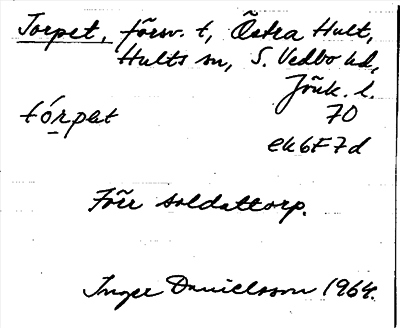 Torpet, försv. t, Östra Hult,
Hults sn, S. Vedbo hd,
Jönk. l.
tórpet 70
ek6F7d
Förr soldattorp.
Inger Danielsson 1964.